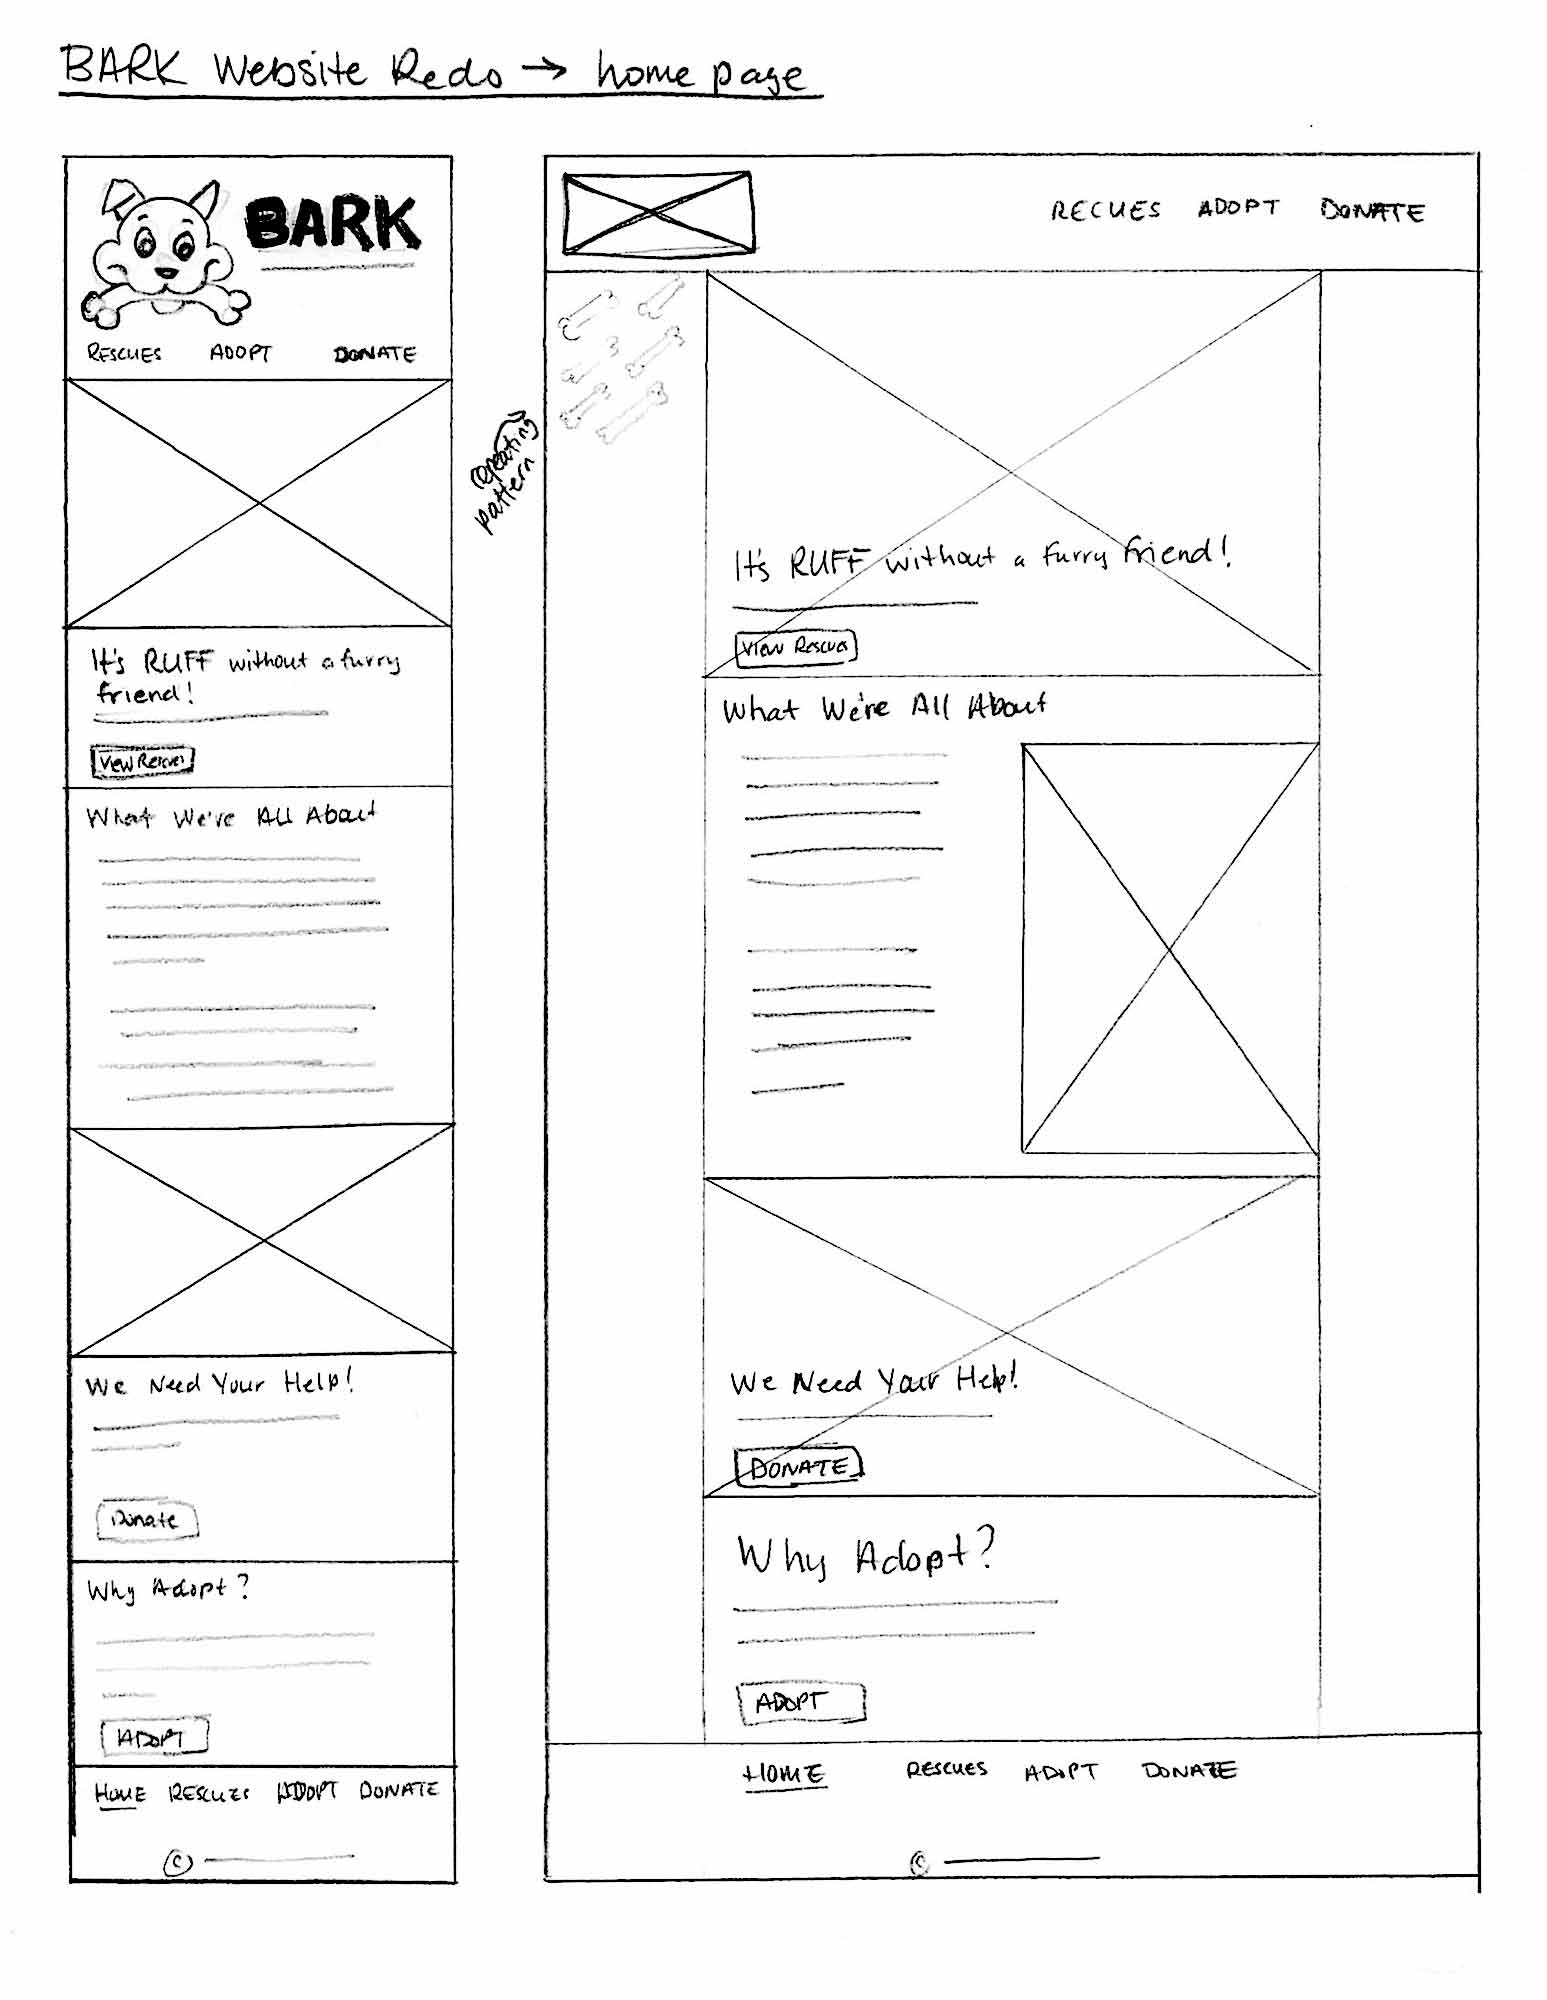 BARK Website Redo → home page
BARK
RESCUES ADOPT DONATE
It's RUFF without a furry
friend!
View Rescues
What We're All About
We Need Your Help!
Donate
Why Adopt?
ADOPT
HOME RESCUES ADOPT DONATE
©
repeating
pattern
RECUES ADOPT DONATE
It's RUFF without a furry friend!
View Rescues
What We're All About
We Need Your Help!
DONATE
Why Adopt?
ADOPT
HOME RESCUES ADOPT DONATE
©